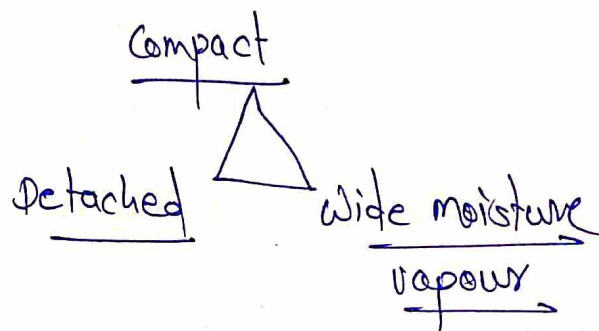 Compact
Detached
Wide moisture
vapour